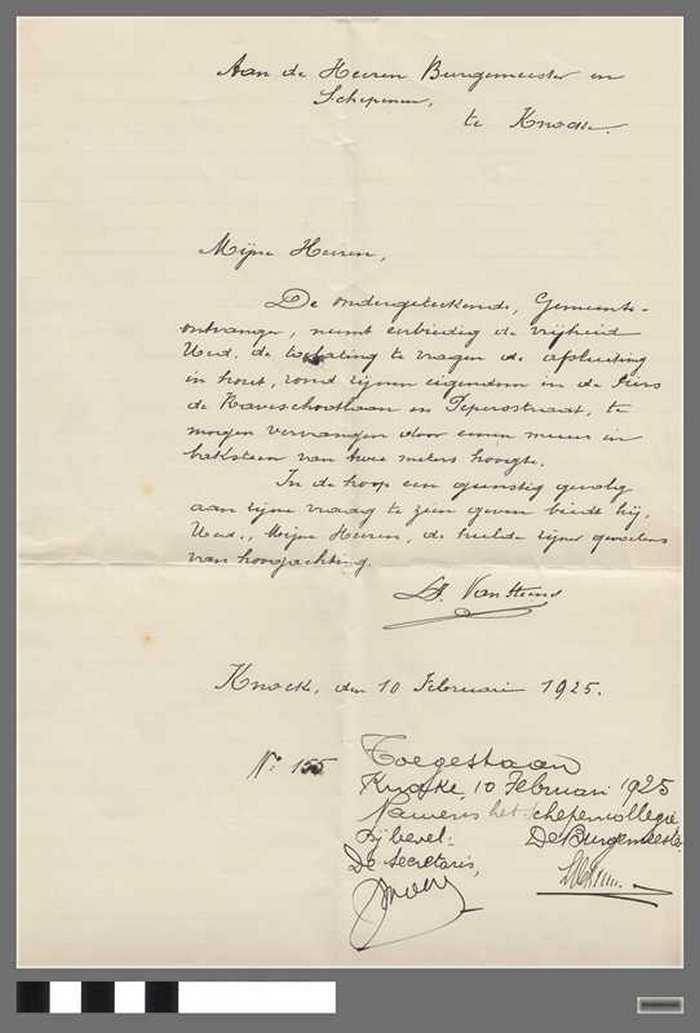 Aan de Heeren Burgemeester en
Schepenen,
te Knocke.
Mijne Heeren,
De ondergeteekende, Gemeente-
ontvanger, neemt eerbiedig de vrijheid
Ued. de toelating te vragen de afsluiting
in hout, rond zijnen eigendom in de Piers
de Raveschootlaan en Ieperstraat, te
mogen vervangen door eenen muur in
baksteen van twee meters hoogte.
In de hoop een gunstig gevolg
aan zijne vraag te zien geven biedt hij,
Ued., Mijne Heeren, de hulde zijner gevoelens
van hoogachting.
Knocke, den 10 Februari 1925.
N° 155
Toegestaan
Knocke, 10 Februari 1925
Namens het Schepencollegie
Bij bevel: De Burgemeester
De Secretaris,